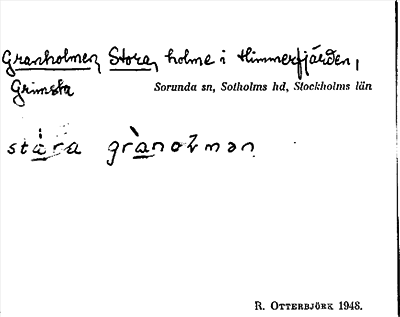 Granholmen, Stora, holme i Himmerfjärden,
Grimsta
Sorunda sn, Sotholms hd, Stockholms län
stɑ́ra grànoɫmən
R. OTTERBJÖRK 1948.